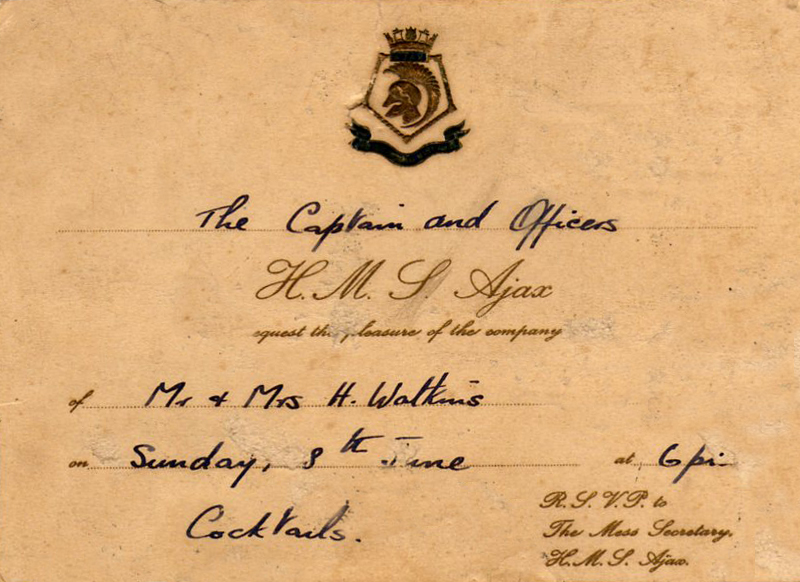 The Captain and Officers
H.M.S. Ajax
equest the pleasure of the company
of Mr & Mrs H. Watkins
on Sunday, 8th June at 6pm
Cocktails.
R.S.V.P. to
The Mess Secretary,
H.M.S. Ajax.